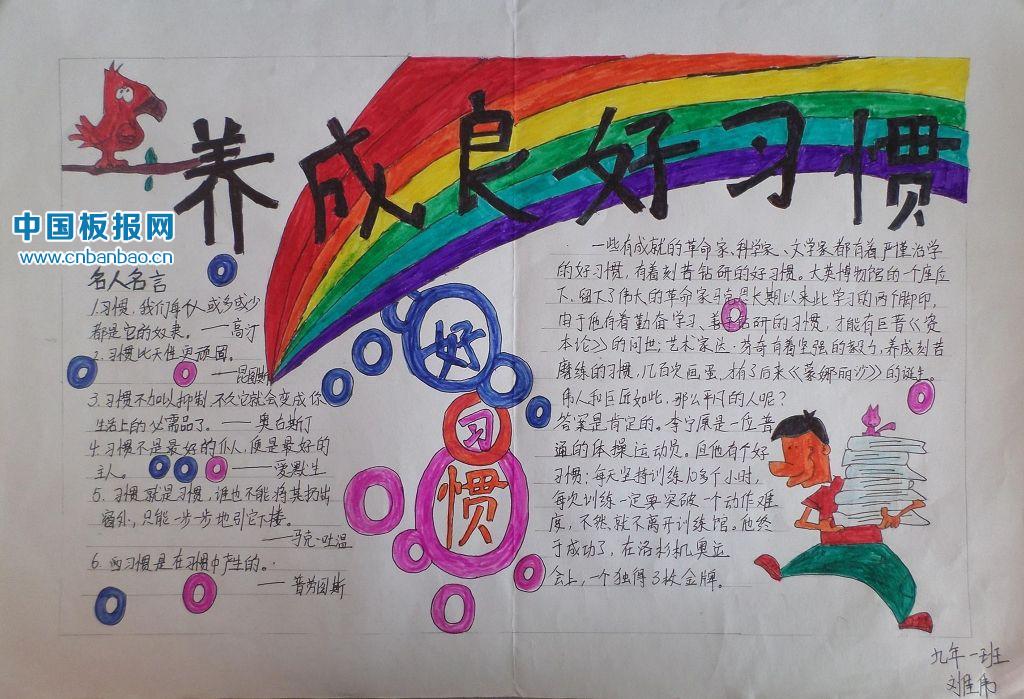 养成良好习惯
中国板报网
www.cnbanbao.cn
名人名言
1.习惯,我们每个人或多或少
都是它的奴隶。——高汀
2.习惯比天性更顽固。
——昆图斯
3.习惯不加以抑制,不久它就会变成你
生活上的必需品了。——奥古斯汀
4.习惯不是最好的仆人,便是最好的
主人。——爱默生
5.习惯就是习惯,谁也不能将其扔出
窗外,只能一步一步地引它下楼。
——马克·吐温
6.习惯是在习惯中产生的。
——普劳图斯
好
习
惯
一些有成就的革命家、科学家、文学家都有着严谨治学
的好习惯,有着刻苦钻研的好习惯。大英博物馆的一个座位
下,留下了伟大的革命家马克思长期以来此学习的两个脚印,
由于他有着勤奋学习、善于钻研的习惯,才能有巨著《资
本论》的问世;艺术家达·芬奇有着坚强的毅力,养成刻苦
磨练的习惯,几百次画蛋,才有了后来《蒙娜丽莎》的诞生。
伟人和巨匠如此,那么平凡的人呢?
答案是肯定的。李宁原是一位普
通的体操运动员。但他有个好
习惯:每天坚持训练10多个小时,
每次训练一定要突破一个动作难
度,不然就不离开训练馆。他终
于成功了,在洛杉机奥运
会上,一个独得3枚金牌。
九年一班